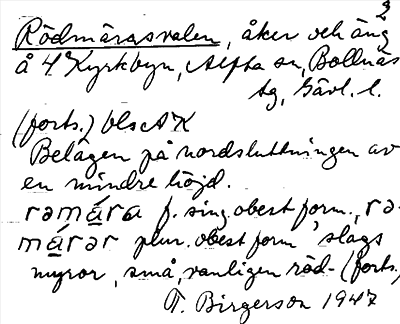 2
Rödmårasvalen, åker och äng
å 4 Kyrkbyn, Alfta sn, Bollnäs
tg, Gävl. l.
(forts.) blsAK
Belägen på nordsluttningen av
en mindre höjd.
rəmára f. sing. obest form., rə-
márər plur. obest form 'slags
myror, små, vanligen röd- (forts.)
T. Birgerson 1947